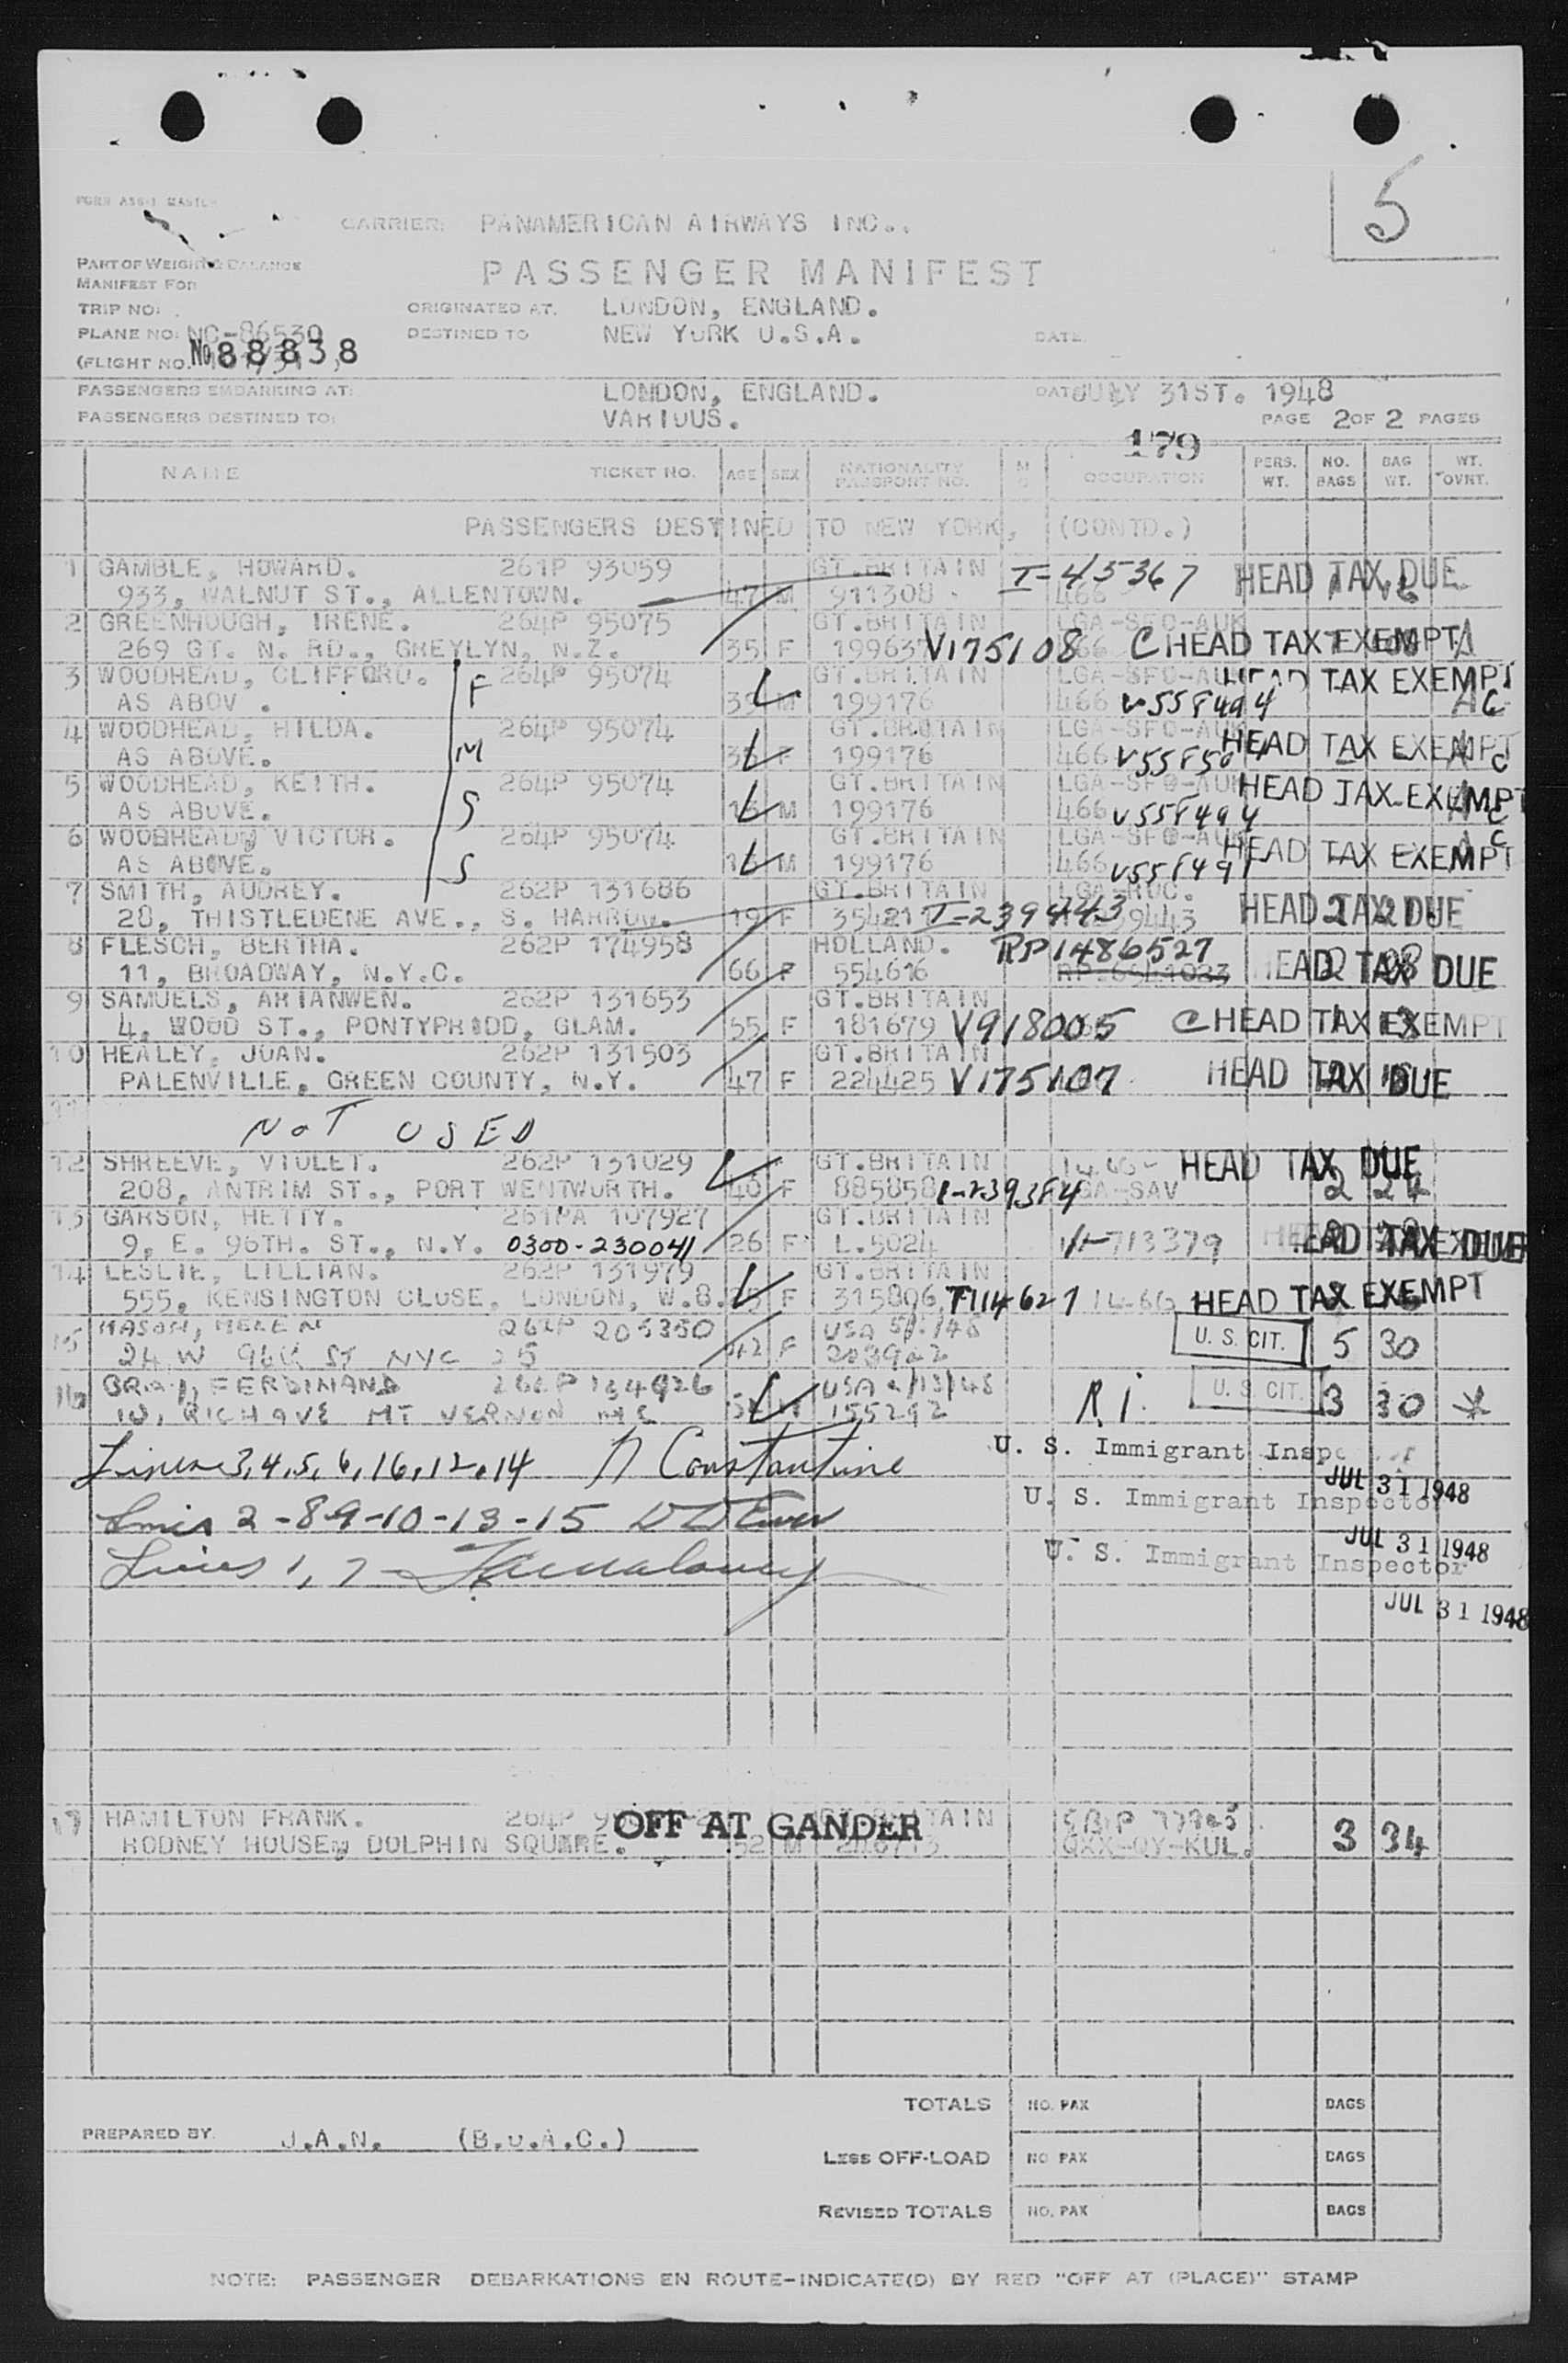 5
CARRIER: PANAMERICAN AIRWAYS INC..
PART OF WEIGHT & BALANCE
MANIFEST FOR
PASSENGER MANIFEST
TRIP NO:
ORIGINATED AT. LONDON, ENGLAND.
PLANE NO: NC-86530
DESTINED TO NEW YORK U.S.A.
DATE
(FLIGHT NO. No 88838
PASSENGERS EMBARKING AT: LONDON, ENGLAND. DATE JULY 31ST. 1948
PASSENGERS DESTINED TO: VARIOUS. PAGE 2 OF 2 PAGES
179
NAME TICKET NO. AGE SEX NATIONALITY PASSPORT NO. OCCUPATION PERS. WT. NO. BAGS BAG WT. WT. OVNT.
PASSENGERS DESTINED TO NEW YORK, (CONTD.)
1 GAMBLE, HOWARD. 261P 93059 GT.BRITAIN I-45367 HEAD TAX DUE
933, WALNUT ST., ALLENTOWN. 47 M 911308 466
2 GREENHOUGH, IRENE. 264P 95075 GT.BRITAIN LGA-SFO-AUK
269 GT. N. RD., GREYLYN, N.Z. 35 F 199637 V175108 C HEAD TAX EXEMPT
3 WOODHEAD, CLIFFORD. F 264P 95074 GT.BRITAIN LGA-SFO-AUK HEAD TAX EXEMPT
AS ABOV . 39 M 199176 466 V558494
4 WOODHEAD, HILDA. M 264P 95074 GT.BROTAIN LGA-SFO-AUK
AS ABOVE. F 199176 466 HEAD TAX EXEMPT
5 WOODHEAD, KEITH. S 264P 95074 GT.BRITAIN LGA-SFO-AUK HEAD TAX EXEMPT
AS ABOVE. M 199176 466 V558494
6 WOODHEAD, VICTOR. S 264P 95074 GT.BRITAIN LGA-SFO-AUK
AS ABOVE. M 199176 466 HEAD TAX EXEMPT
7 SMITH, AUDREY. 262P 131686 GT.BRITAIN LGA-ROC.
28, THISTLEDENE AVE., S. HARROW. 19 F I-239443 HEAD TAX DUE
8 FLESCH, BERTHA. 262P 174958 HOLLAND. RP1486527
11, BROADWAY, N.Y.C. 66 F 554616 HEAD TAX DUE
9 SAMUELS, ARIANWEN. 262P 131653 GT.BRITAIN
4, WOOD ST., PONTYPRIDD, GLAM. 55 F 181679 V918005 C HEAD TAX EXEMPT
10 HEALEY, JOAN. 262P 131503 GT.BRITAIN
PALENVILLE, GREEN COUNTY, N.Y. 47 F 224425 V175107 HEAD TAX DUE
NOT USED
12 SHREEVE, VIOLET. 262P 131029 GT.BRITAIN HEAD TAX DUE
208, ANTRIM ST., PORT WENTWORTH. 40 F 885858 I-239384 LGA-SAV 2 24
13 GARSON, HETTY. 261PA 107927 GT.BRITAIN
9, E. 96TH. ST., N.Y. 0300-230041 26 F L.5024 713379 HEAD TAX DUE
14 LESLIE, LILLIAN. 262P 131979 GT.BRITAIN
555, KENSINGTON CLOSE, LONDON, W.8. F 315806 HEAD TAX EXEMPT
15 MASON, HELEN 262P 205350 USA
24 W 96th ST NYC 25 42 F U. S. CIT. 5 30
16 FERDINAND USA 2/13/48
10, RICH AVE MT VERNON 155292 R.I. U. S. CIT. 3 30
Lines 3,4,5,6,16,12,14 N Constantine U. S. Immigrant Inspector
JUL 31 1948
Lines 2-8-9-10-13-15 U. S. Immigrant Inspector
JUL 31 1948
Lines 1, 7 U. S. Immigrant Inspector
JUL 31 1948
17 HAMILTON FRANK. 264P OFF AT GANDER
RODNEY HOUSE, DOLPHIN SQUARE. 52 M QXX-QY-KUL. 3 34
TOTALS NO. PAX BAGS
PREPARED BY. J.A.N. (B.O.A.C.)
LESS OFF-LOAD NO PAX BAGS
REVISED TOTALS NO. PAX BAGS
NOTE: PASSENGER DEBARKATIONS EN ROUTE-INDICATE(D) BY RED "OFF AT (PLACE)" STAMP